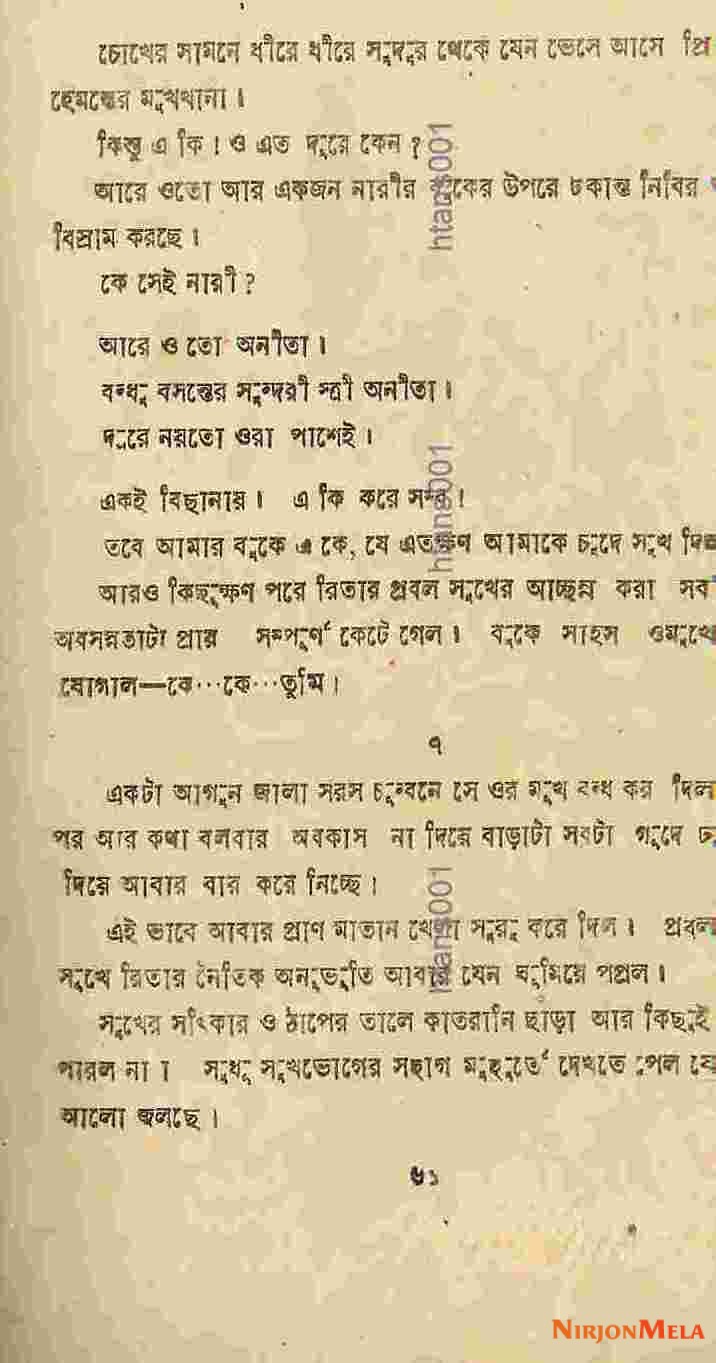 চোখের সামনে ধীরে ধীরে সুদূর থেকে যেন ভেসে আসে প্রি
হেমন্তের মুখখানা।
কিন্তু এ কি! ও এত দূরে কেন?
আরে ওতো আর একজন নারীর বুকের উপরে চকান্ত নিবির
বিস্রাম করছে।
কে সেই নারী?
আরে ও তো অনীতা।
বন্ধু বসন্তের সুন্দরী স্ত্রী অনীতা।
দূরে নয়তো ওরা পাশেই।
একই বিছানায়। এ কি করে সম্ভব!
তবে আমার বুকে এ কে, যে এতক্ষণ আমাকে চুদে সুখ দিল
আরও কিছুক্ষণ পরে রিতার প্রবল সুখের আচ্ছন্ন করা সব
অবসন্নতাটা প্রায় সম্পূর্ণ কেটে গেল। বুকে সাহস ওমুখে
যোগাল—কে...কে...তুমি।
৭
একটা আগুন জালা সরস চুম্বনে সে ওর মুখ বন্ধ কর দিল
পর আর কথা বলবার অবকাস না দিয়ে বাড়াটা সবটা গুদে
দিয়ে আবার বার করে নিচ্ছে।
এই ভাবে আবার প্রাণ মাতান খেলা সুরু করে দিল। প্রবল
সুখে রিতার নৈতিক অনুভূতি আবার যেন ঘুমিয়ে পপ্রল।
সুখের সৎিকার ও ঠাপের তালে কাতরানি ছাড়া আর কিছুই
পারল না। সুধু সুখভোগের সহাগ মুহূর্তে দেখতে পেল যে
আলো জলছে।
৬১
htans001
htans001
htans001
NIRJONMELA